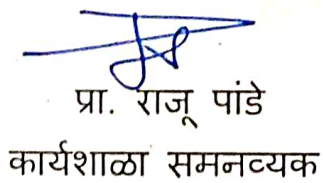 प्रा. राजू पांडे
कार्यशाळा समनव्यक